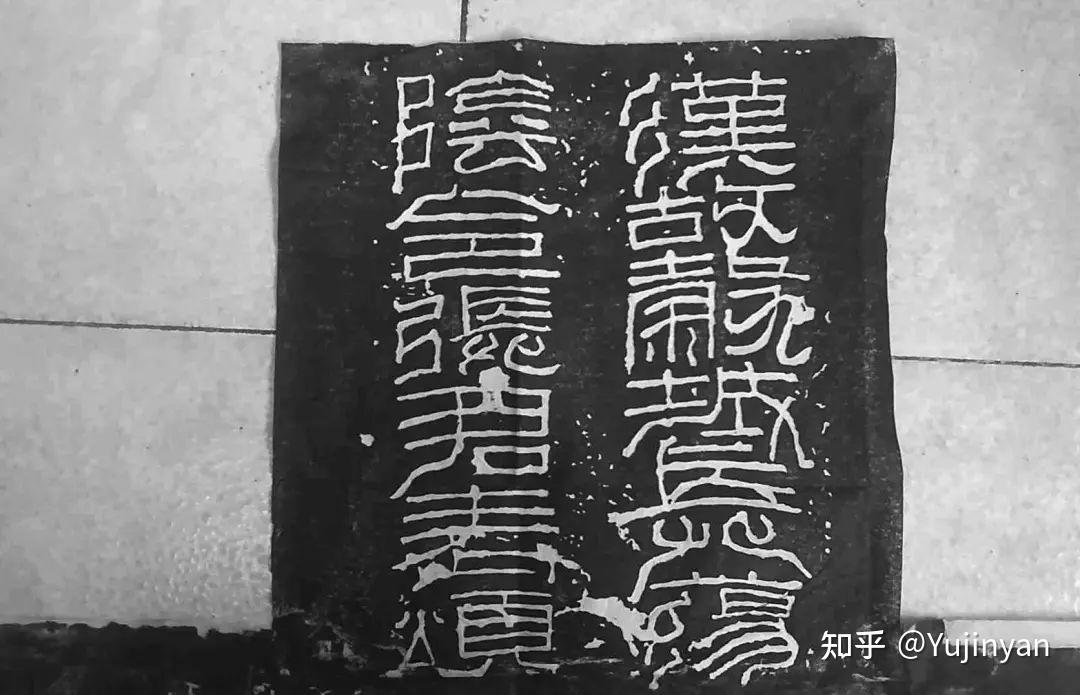 漢故穀城長蕩
陰令張君表頌
知乎 @Yujinyan